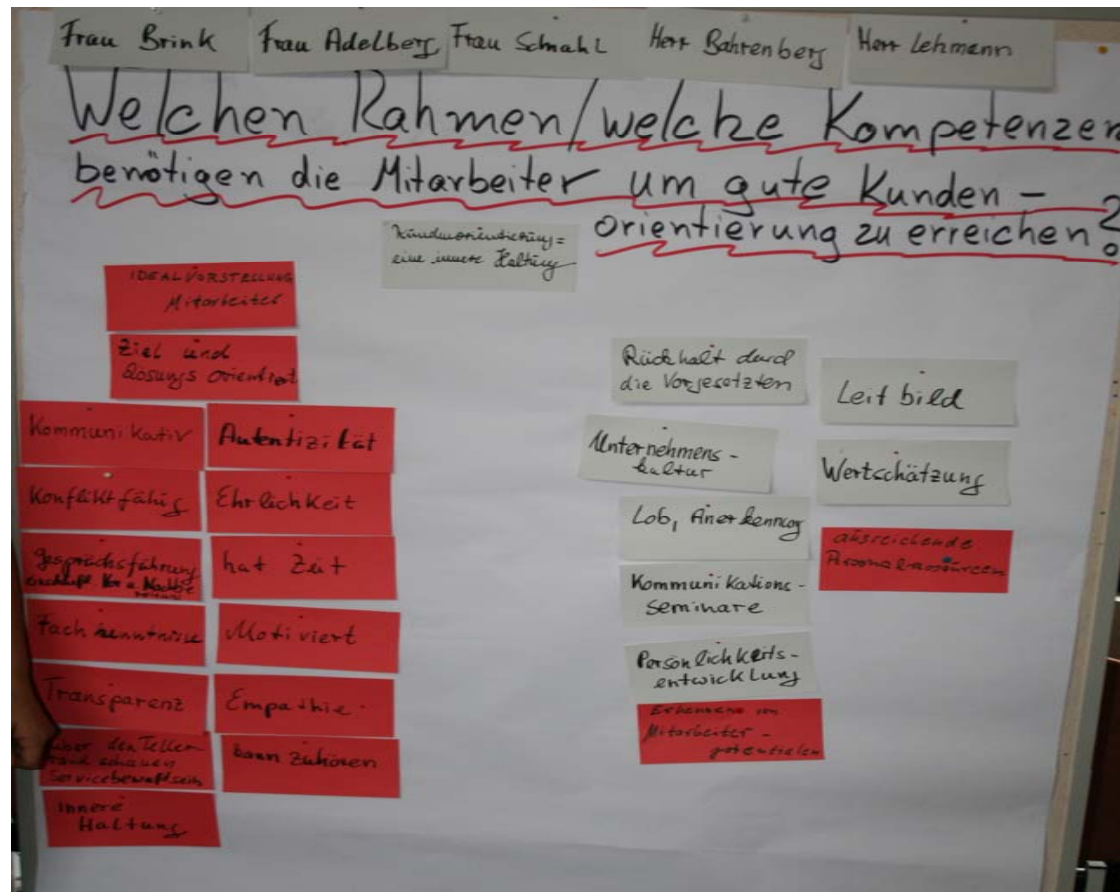 Frau Brink
Frau Adelberg
Frau Schahl
Herr Bahrenberg
Herr Lehmann
Welchen Rahmen/welche Kompetenzen
benötigen die Mitarbeiter um gute Kunden-
orientierung zu erreichen?
Kundenorientierung=
eine innere Haltung
IDEALVORSTELLUNG
Mitarbeiter
Ziel und
Lösungs orientiert
Kommunikativ
Konfliktfähig
Gesprächsführung
Vor u.
Fachkenntnisse
Transparenz
über den Teller-
rand schauen
Servicebewußtsein
innere
Haltung
Autentizität
Ehrlichkeit
hat Zeit
Motiviert
Empathie
kann zuhören
Rückhalt durch
die Vorgesetzten
Unternehmens-
kultur
Lob, Anerkennung
Kommunikations-
seminare
Persönlichkeits-
entwicklung
Erkennen von
Mitarbeiter-
potentialen
Leitbild
Wertschätzung
ausreichende
Personalressourcen